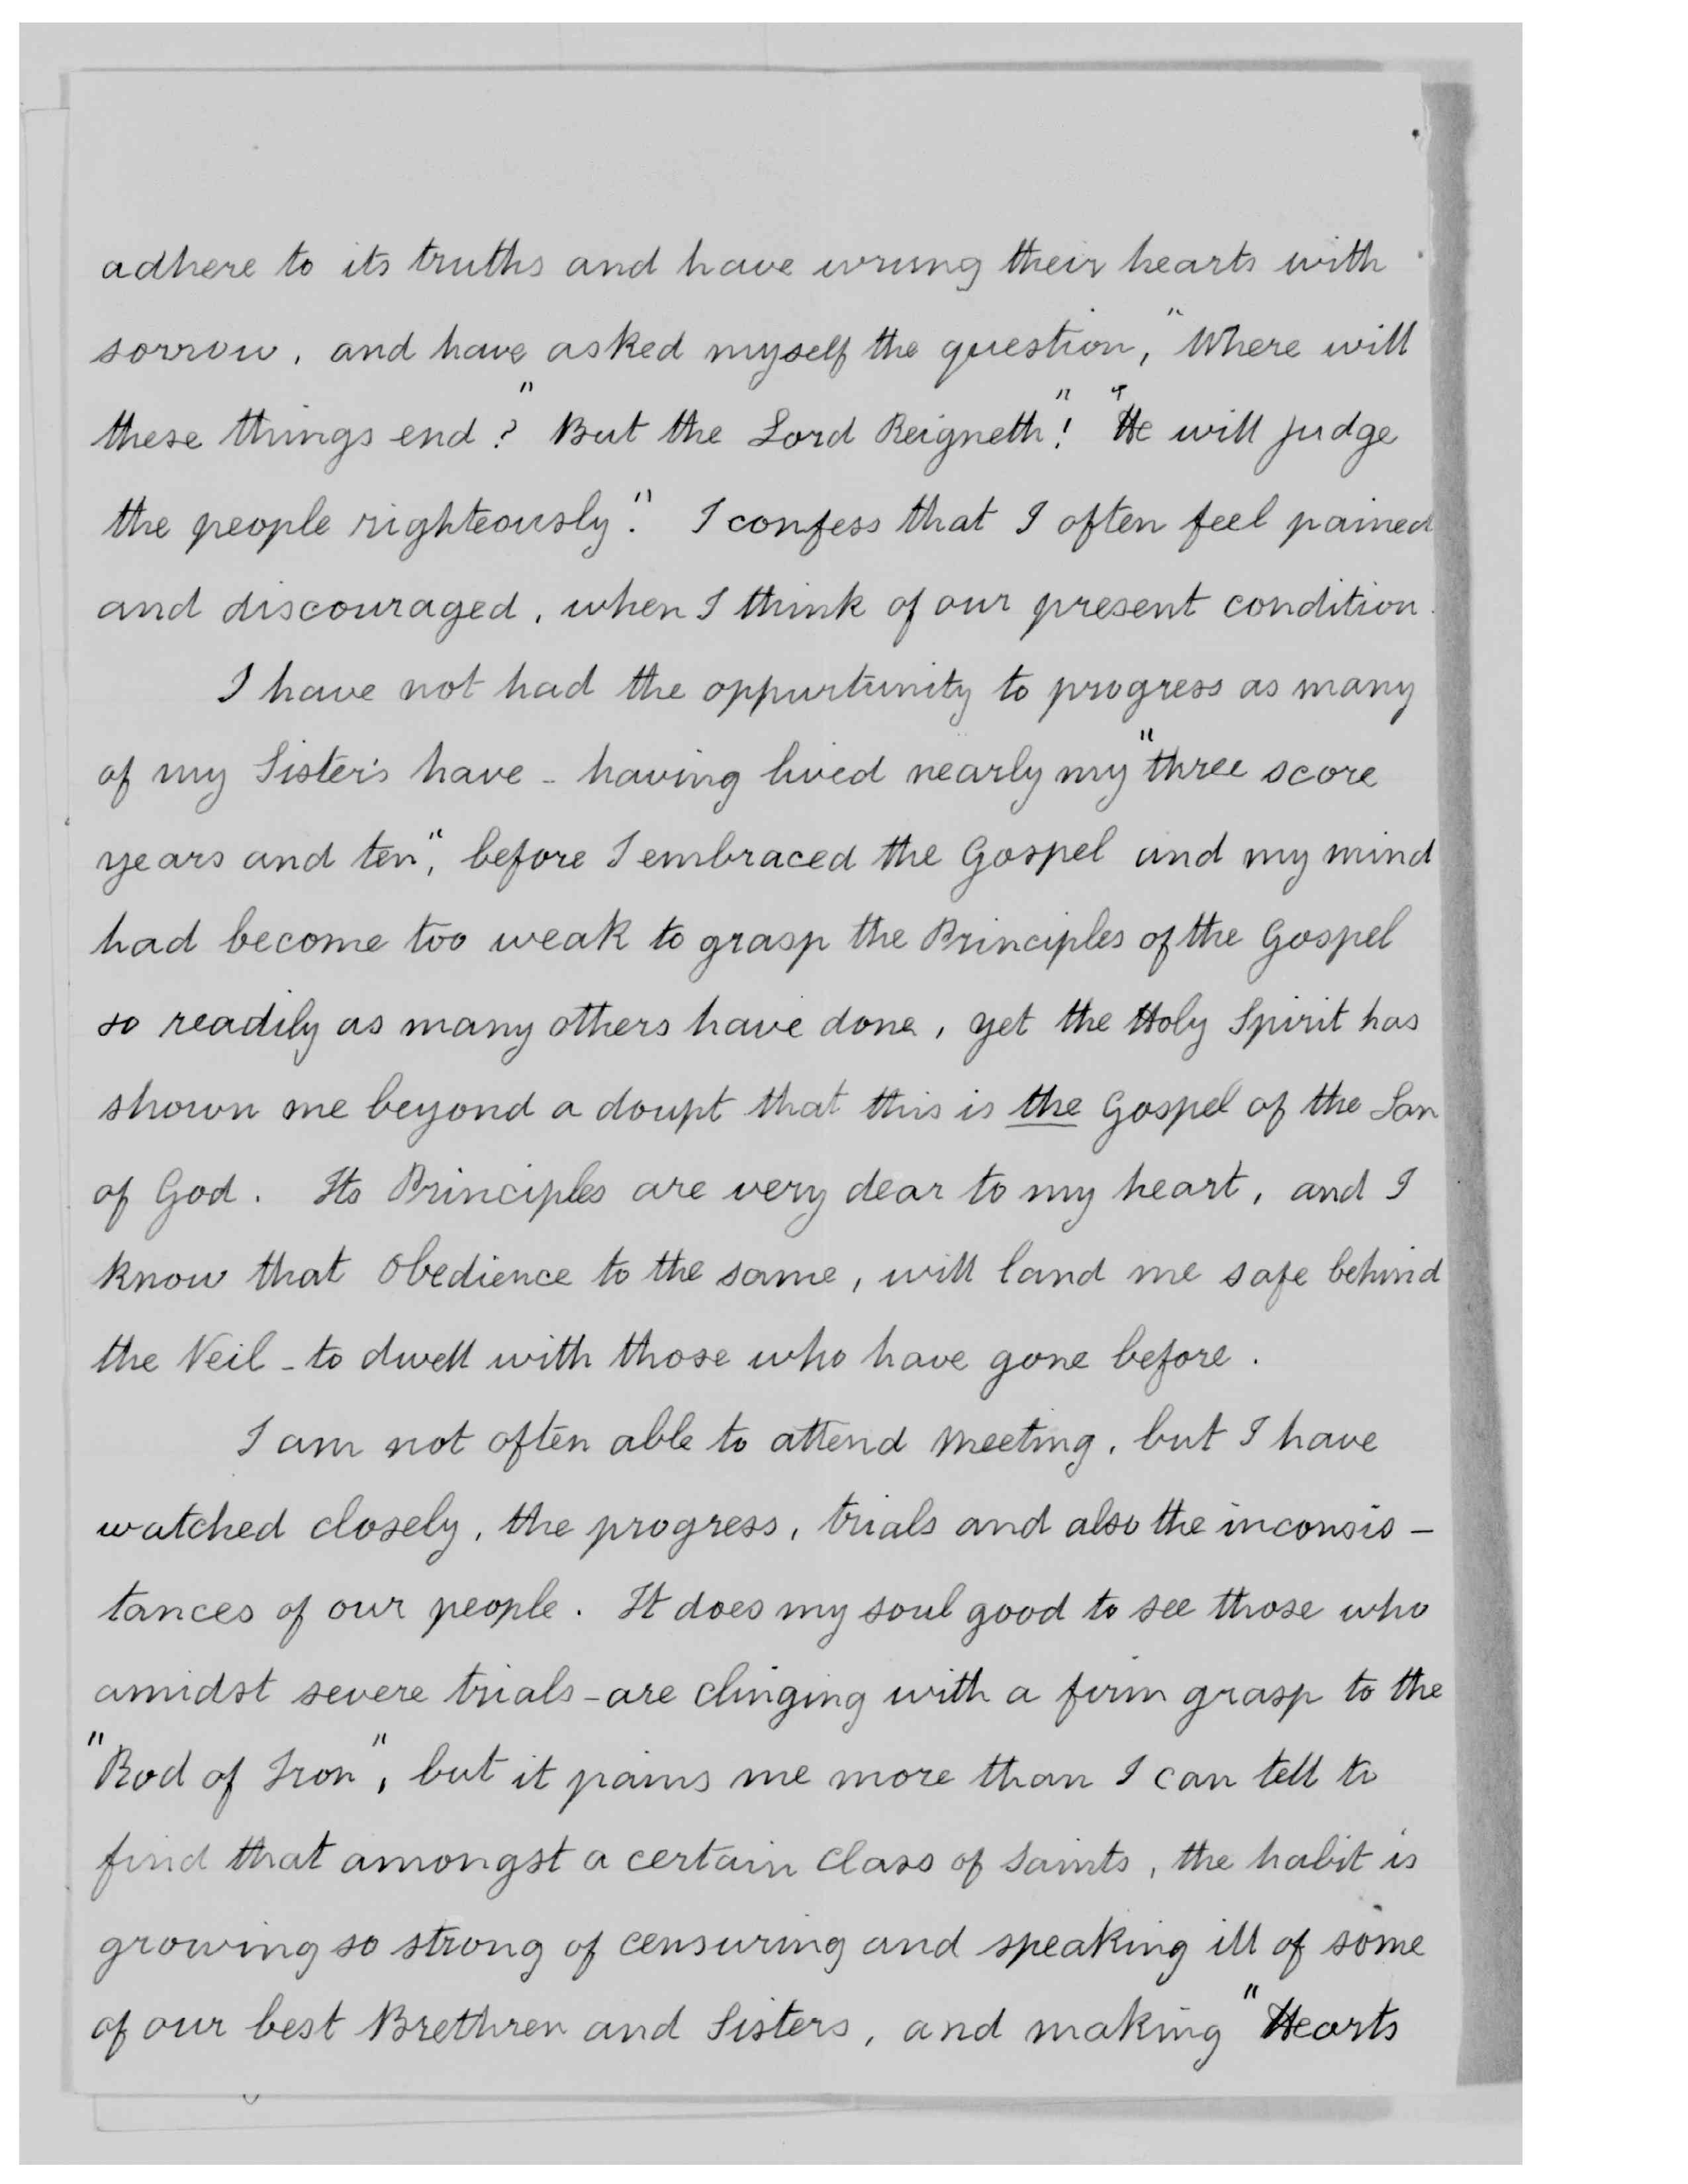 adhere to its truths and have wrung their hearts with
sorrow, and have asked myself the question, "Where will
these things end?" But the Lord Reigneth"! "He will judge
the people righteously." I confess that I often feel pained
and discouraged, when I think of our present condition.
I have not had the oppurtunity to progress as many
of my Sister's have - having lived nearly my "three score
years and ten", before I embraced the Gospel and my mind
had become too weak to grasp the Principles of the Gospel
so readily as many others have done, yet the Holy Spirit has
shown me beyond a doupt that this is the Gospel of the Son
of God. Its Principles are very dear to my heart, and I
know that Obedience to the same, will land me safe behind
the Veil - to dwell with those who have gone before.
I am not often able to attend Meeting, but I have
watched closely, the progress, trials and also the inconsis-
tances of our people. It does my soul good to see those who
amidst severe trials - are clinging with a firm grasp to the
"Rod of Iron", but it pains me more than I can tell to
find that amongst a certain Class of Saints, the habit is
growing so strong of censuring and speaking ill of some
of our best Brethren and Sisters, and making "Hearts